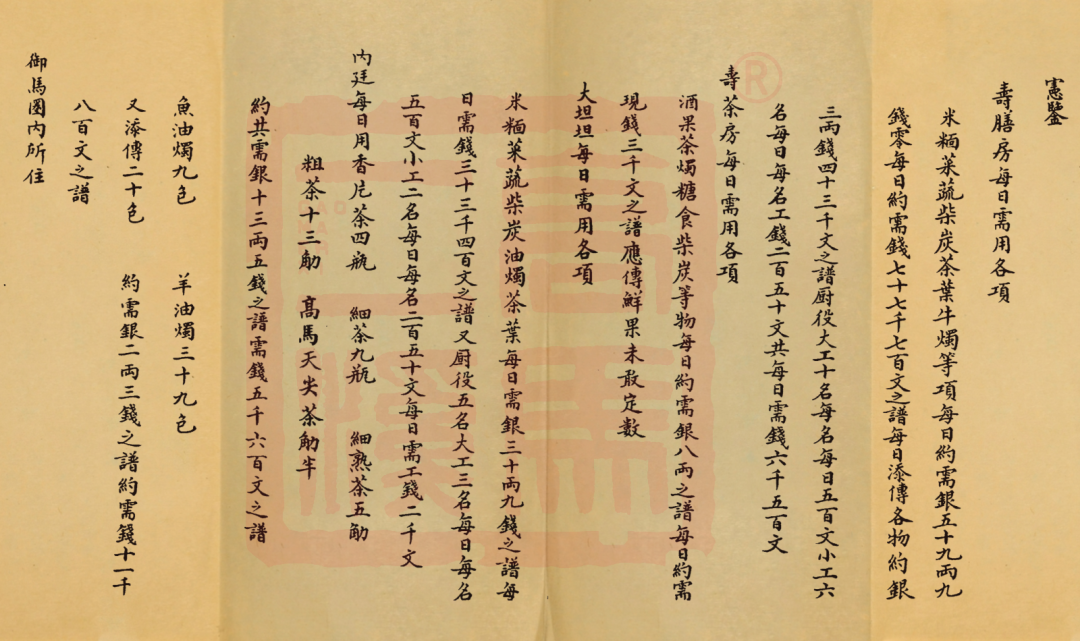 憲鑒
壽膳房每日需用各項
米糆菜蔬柴炭茶葉牛燭等項每日約需銀五十九兩九
錢零每日約需錢七十七千七百文之譜每日添傳各物約銀
三兩錢四十三千文之譜厨役大工十名每名每日五百文小工六
名每日每名工錢二百五十文共每日需錢六千五百文
壽茶房每日需用各項
酒果茶燭糖食柴炭等物每日約需銀八兩之譜每日約需
現錢三千文之譜應傳鮮果未敢定數
大坦坦每日需用各項
米糆菜蔬柴炭油燭茶葉每日需銀三十兩九錢之譜每
日需錢三十三千四百文之譜又厨役五名大工三名每日每名
五百文小工二名每日每名二百五十文每日需工錢二千文
內廷每日用香片茶四瓶 細茶九瓶 細熟茶五觔
粗茶十三觔 高馬天尖茶觔半
約共需銀十三兩五錢之譜需錢五千六百文之譜
魚油燭九色 羊油燭三十九色
又添傳二十色 約需銀二兩三錢之譜約需錢十一千
八百文之譜
御馬圈內所住